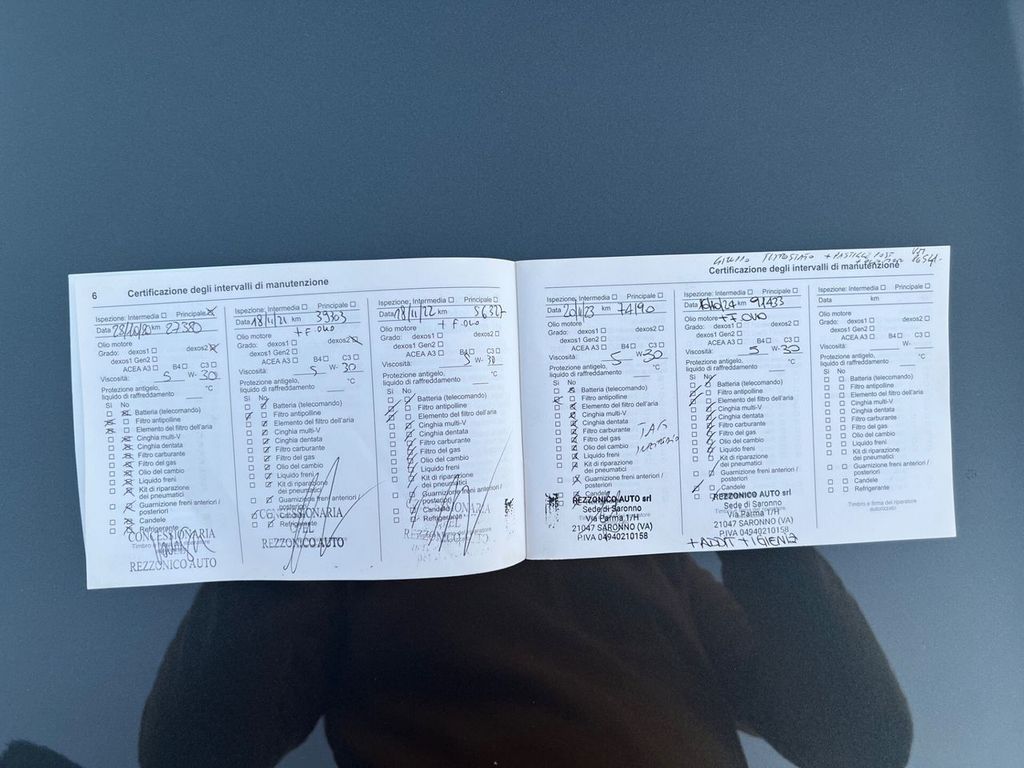 6 Certificazione degli intervalli di manutenzione
Ispezione: Intermedia Principale
Data 28/10/20 km 27380
Olio motore
Grado: dexos1 dexos2
dexos1 Gen2
ACEA A3 B4 C3
Viscosità: 5 W- 30
Protezione antigelo, °C
liquido di raffreddamento
Sì No
Batteria (telecomando)
Filtro antipolline
Elemento del filtro dell'aria
Cinghia multi-V
Cinghia dentata
Filtro carburante
Filtro del gas
Olio del cambio
Liquido freni
Kit di riparazione
dei pneumatici
Guarnizione freni anteriori /
posteriori
Candele
Refrigerante
CONCESSIONARIA
REZZONICO AUTO
Ispezione: Intermedia Principale
Data 18/11/21 km 39303
Olio motore + F. OLIO
Grado: dexos1 dexos2
dexos1 Gen2
ACEA A3 B4 C3
Viscosità: 5 W- 30
Protezione antigelo, °C
liquido di raffreddamento
Sì No
Batteria (telecomando)
Filtro antipolline
Elemento del filtro dell'aria
Cinghia multi-V
Cinghia dentata
Filtro carburante
Filtro del gas
Olio del cambio
Liquido freni
Kit di riparazione
dei pneumatici
Guarnizione freni anteriori /
posteriori
Candele
Refrigerante
CONCESSIONARIA
REZZONICO AUTO
Ispezione: Intermedia Principale
Data 18/11/22 km 56327
Olio motore + F. OLIO
Grado: dexos1 dexos2
dexos1 Gen2
ACEA A3 B4 C3
Viscosità: 5 W- 30
Protezione antigelo, °C
liquido di raffreddamento
Sì No
Batteria (telecomando)
Filtro antipolline
Elemento del filtro dell'aria
Cinghia multi-V
Cinghia dentata
Filtro carburante
Filtro del gas
Olio del cambio
Liquido freni
Kit di riparazione
dei pneumatici
Guarnizione freni anteriori /
posteriori
Candele
Refrigerante
REZZONICO AUTO
Certificazione degli intervalli di manutenzione
Ispezione: Intermedia Principale
Data 20/11/23 km 74190
Olio motore
Grado: dexos1 dexos2
dexos1 Gen2
ACEA A3 B4 C3
Viscosità: 5 W- 30
Protezione antigelo, °C
liquido di raffreddamento
Sì No
Batteria (telecomando)
Filtro antipolline
Elemento del filtro dell'aria
Cinghia multi-V
Cinghia dentata
Filtro carburante
Filtro del gas
Olio del cambio
Liquido freni
Kit di riparazione
dei pneumatici
Guarnizione freni anteriori /
posteriori
Candele
REZZONICO AUTO srl
Sede di Saronno
Via Parma 1/H
21047 SARONNO (VA)
P.IVA 04940210158
Ispezione: Intermedia Principale
Data km 91433
Olio motore + F OLIO
Grado: dexos1 dexos2
dexos1 Gen2
ACEA A3 B4 C3
Viscosità: 5 W- 30
Protezione antigelo, °C
liquido di raffreddamento
Sì No
Batteria (telecomando)
Filtro antipolline
Elemento del filtro dell'aria
Cinghia multi-V
Cinghia dentata
Filtro carburante
Filtro del gas
Olio del cambio
Liquido freni
Kit di riparazione
dei pneumatici
Guarnizione freni anteriori /
posteriori
Candele
REZZONICO AUTO srl
Sede di Saronno
Via Parma 1/H
21047 SARONNO (VA)
P.IVA 04940210158
+ ADDIT + IGIENIZ
Ispezione: Intermedia Principale
Data km
Olio motore
Grado: dexos1 dexos2
dexos1 Gen2
ACEA A3 B4 C3
Viscosità: W-
Protezione antigelo, °C
liquido di raffreddamento
Sì No
Batteria (telecomando)
Filtro antipolline
Elemento del filtro dell'aria
Cinghia multi-V
Cinghia dentata
Filtro carburante
Filtro del gas
Olio del cambio
Liquido freni
Kit di riparazione
dei pneumatici
Guarnizione freni anteriori /
posteriori
Candele
Refrigerante
Timbro e firma del riparatore
autorizzato